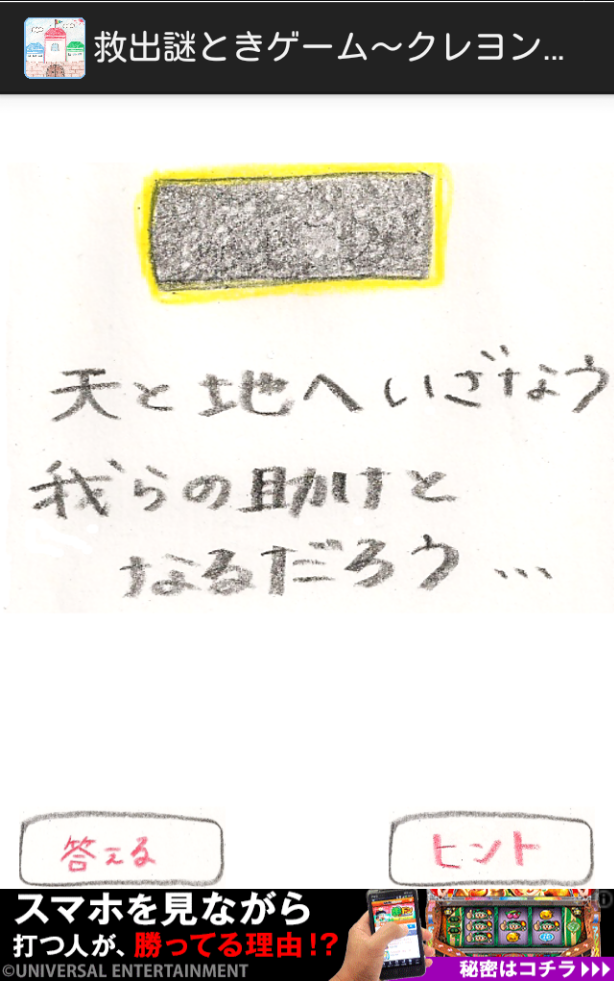 救出謎ときゲーム～クレヨン...
天と地へいざなう
我らの助けと
なるだろう...
答える
ヒント
スマホを見ながら
打つ人が、勝ってる理由!?
©UNIVERSAL ENTERTAINMENT
秘密はコチラ>>>